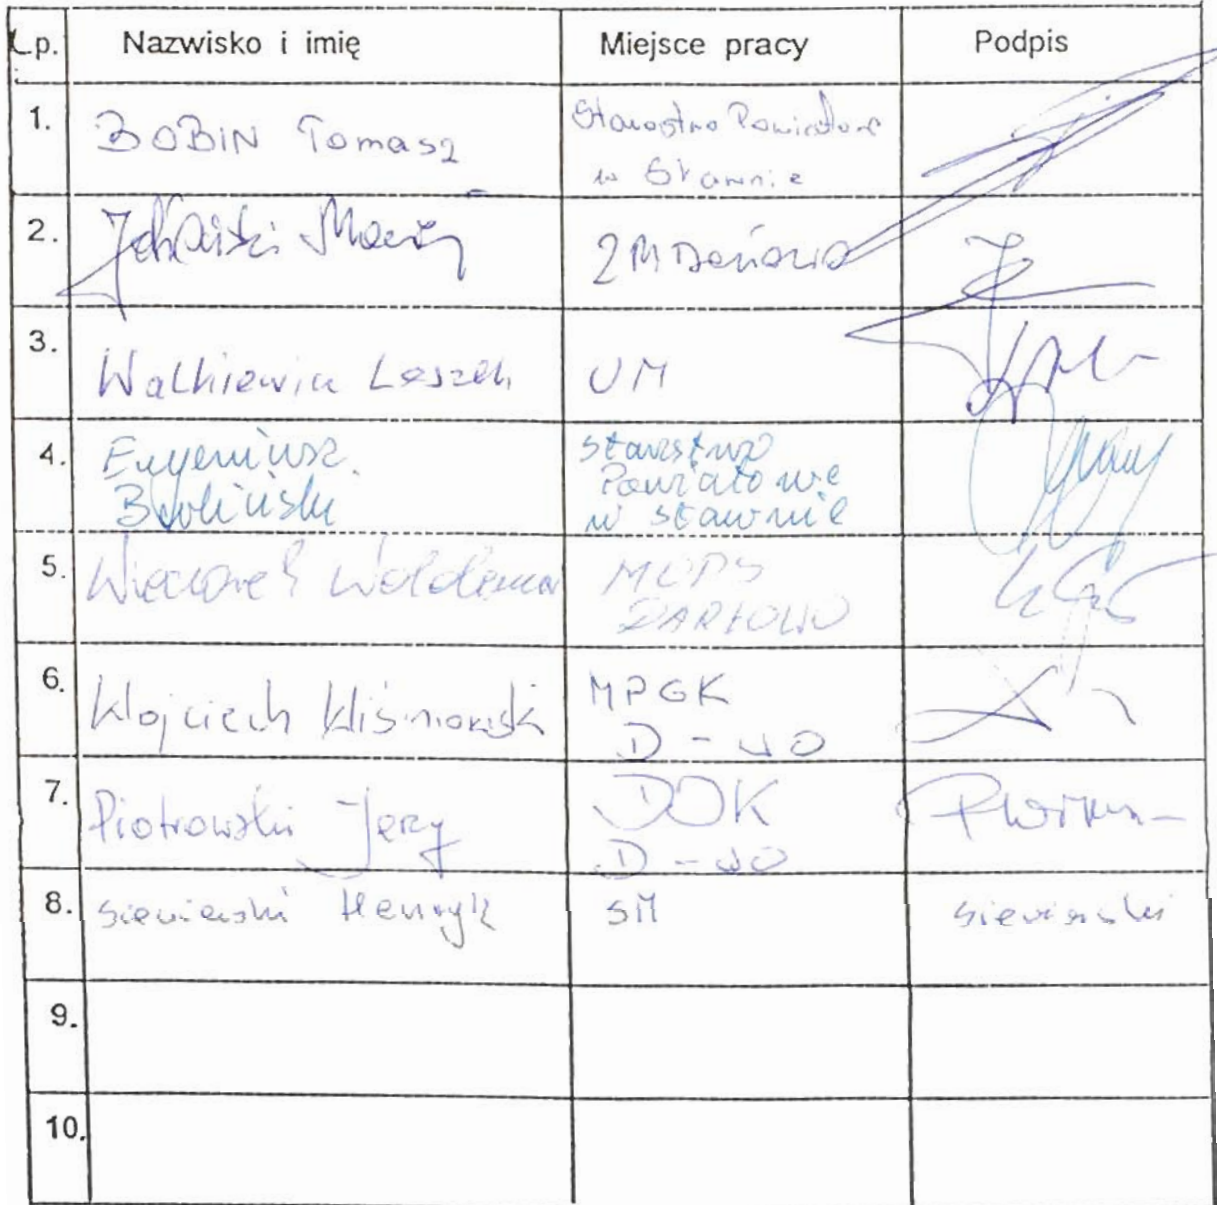 Lp. Nazwisko i imię Miejsce pracy Podpis
1. BOBIN Tomasz Starostwo Powiatowe
w Sławnie
2. Maciej
3. Walkiewicz Leszek UM
4. Eugeniusz Starostwo
Powiatowe
w Sławnie
5. Wieczorek Waldemar MOPS
DARŁOWO
6. Wojciech Wiśniowski MPGK
D-WO
7. Piotrowski Jerzy DOK
D-WO
8. Siewierski Henryk SM Siewierski
9.
10.